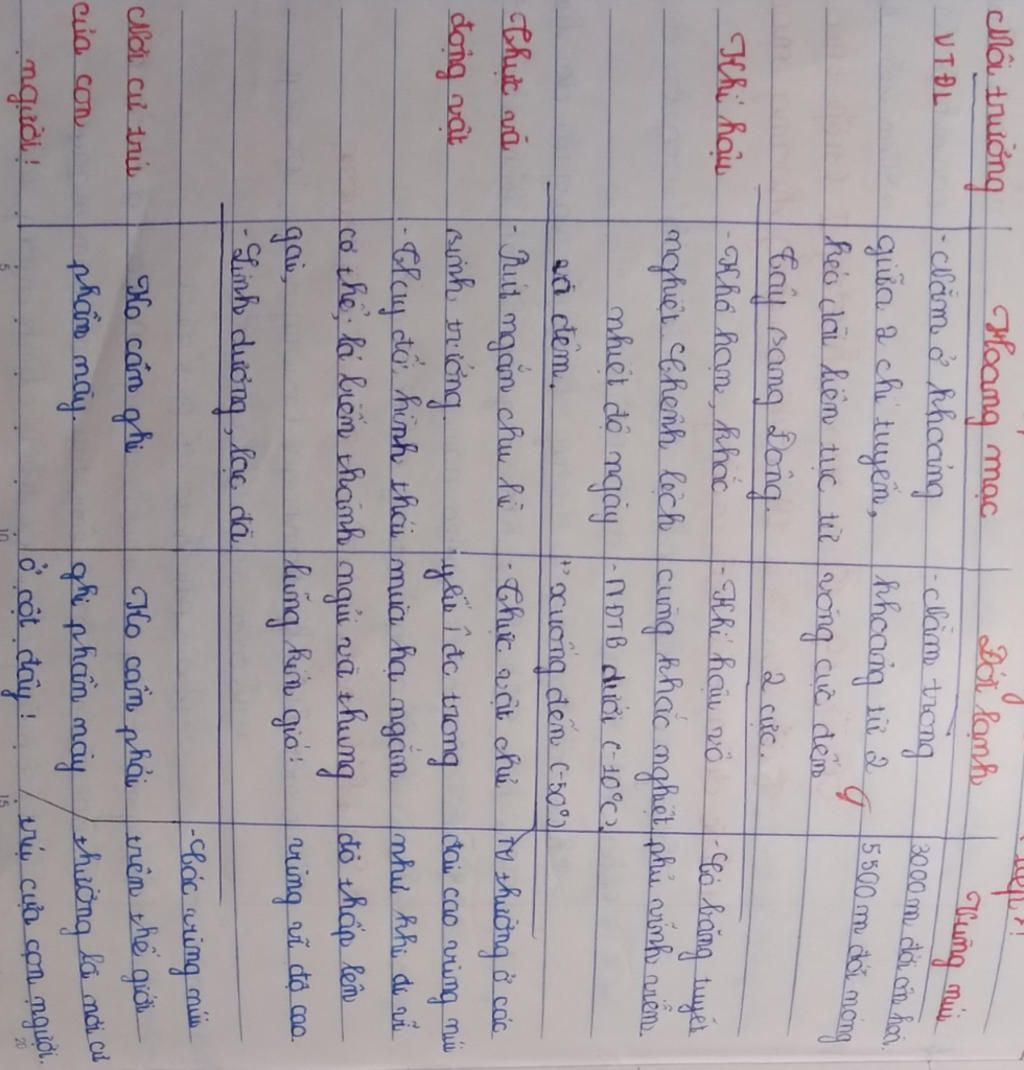 Môi trường Hoang mạc Đới lạnh Vùng núi
VTĐL - Nằm ở khoảng - Nằm trong 3000m đới ôn hoà.
giữa 2 chí tuyến, khoảng từ 2 5500m đới nóng
kéo dài liên tục từ vòng cực đến
Tây sang Đông. 2 cực.
Khí hậu - Khô hạn, khắc - Khí hậu vô - Có băng tuyết
nghiệt. Chênh lệch cùng khắc nghiệt, phủ vĩnh viễn.
nhiệt độ ngày - NĐTB dưới (-10°C)
và đêm. xuống đến (-50°)
Thực và - Rút ngắn chu kì - Thực vật chủ TV thường ở các
động vật sinh trưởng. yếu đc trong đai cao vùng núi
- Thay đổi hình thái mùa hạ ngắn như khi đi vĩ
cơ thể; lá biến thành ngủi và thung độ thấp lên
gai, lũng kín gió! vùng vĩ độ cao
- Linh dương, lạc đà
- Các vùng núi
Nơi cư trú Ko cần ghi Ko cần phải trên thế giới
của con phần này. ghi phần này thường là nơi cư
người! ở cột đây! trú của con người.